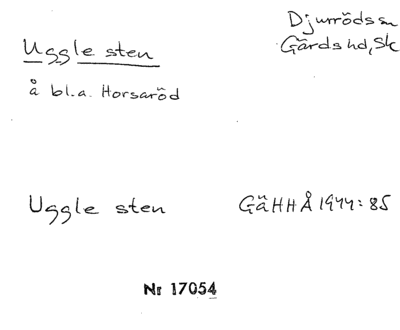 Uggle sten
Djurröds sn
Gärds hd, Sk
å bl.a. Horsaröd
Uggle sten
GäHHÅ 1944: 85
Nr 17054